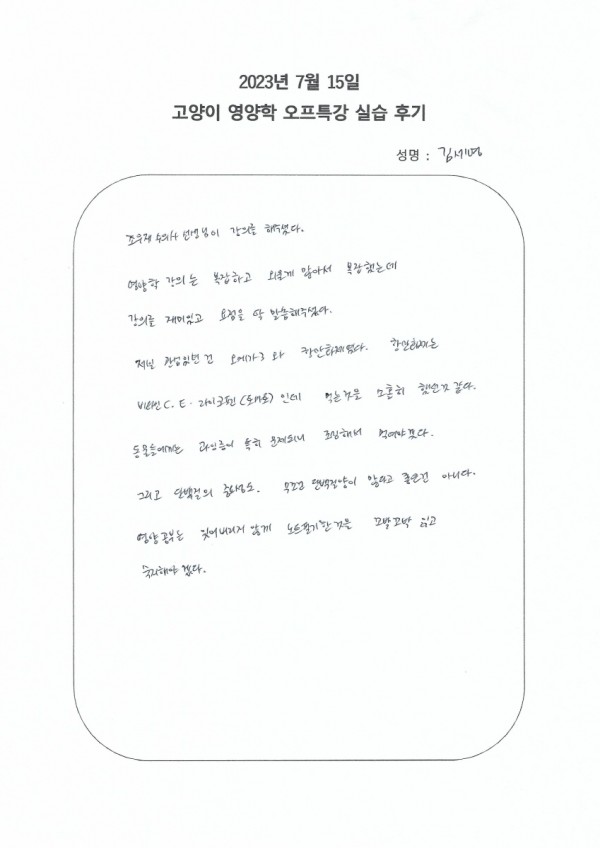 2023년 7월 15일
고양이 영양학 오프특강 실습 후기
성명 : 김세명
조우재 수의사 선생님이 강의를 해주셨다.
영양학 강의는 복잡하고 외울게 많아서 복잡했는데
강의를 재미있고 요점을 딱 말씀해주셨다.
제일 관심있던 건 오메가3 와 항산화제였다. 항산화제는
비타민 C. E. 라이코펜 (토마토) 인데 먹는것을 소홀히 했던것 같다.
동물들에게는 과잉증이 특히 문제되니 조심해서 먹여야겠다.
그리고 단백질의 중요성도. 무조건 단백질양이 많다고 좋은건 아니다.
영양 공부는 잊어버리지 않게 노트필기한 것을 꼬박꼬박 읽고
숙지해야 겠다.